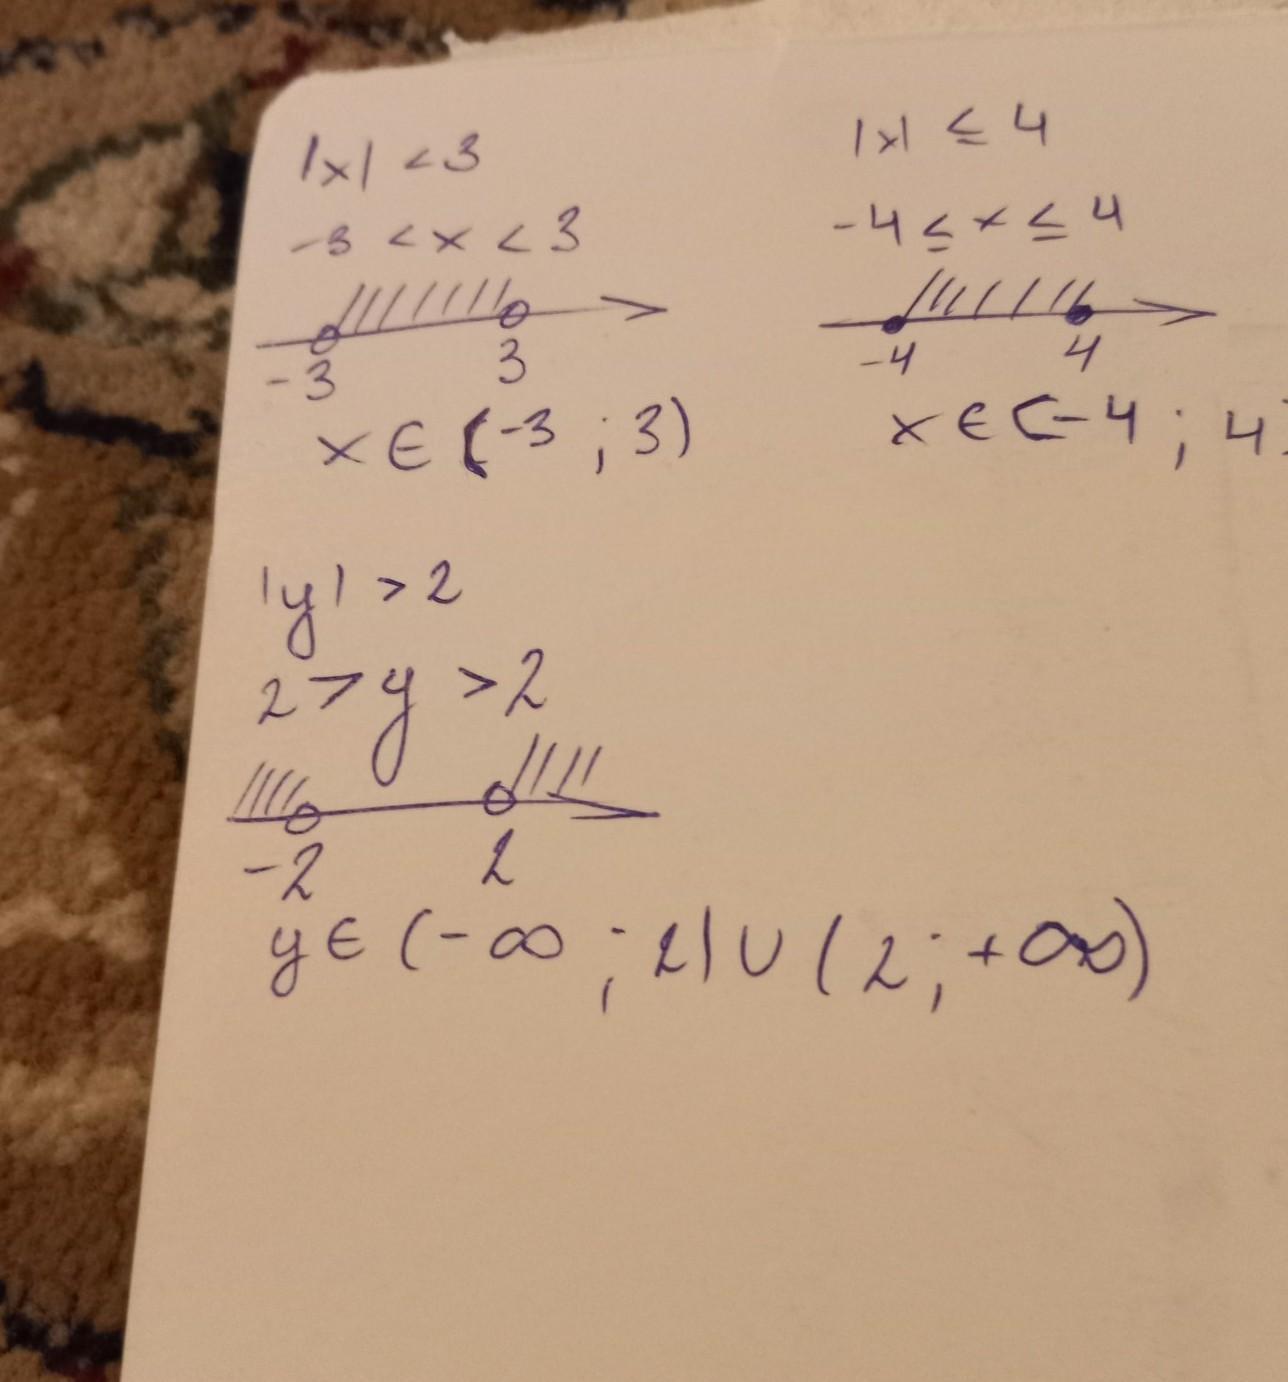 |x| < 3
-3 < x < 3
-3 3
x ∈ (-3 ; 3)
|x| ≤ 4
-4 ≤ x ≤ 4
-4 4
x ∈ [-4 ; 4]
|y| > 2
2 > y > 2
-2 2
y ∈ (-∞ ; 2) ∪ (2 ; +∞)